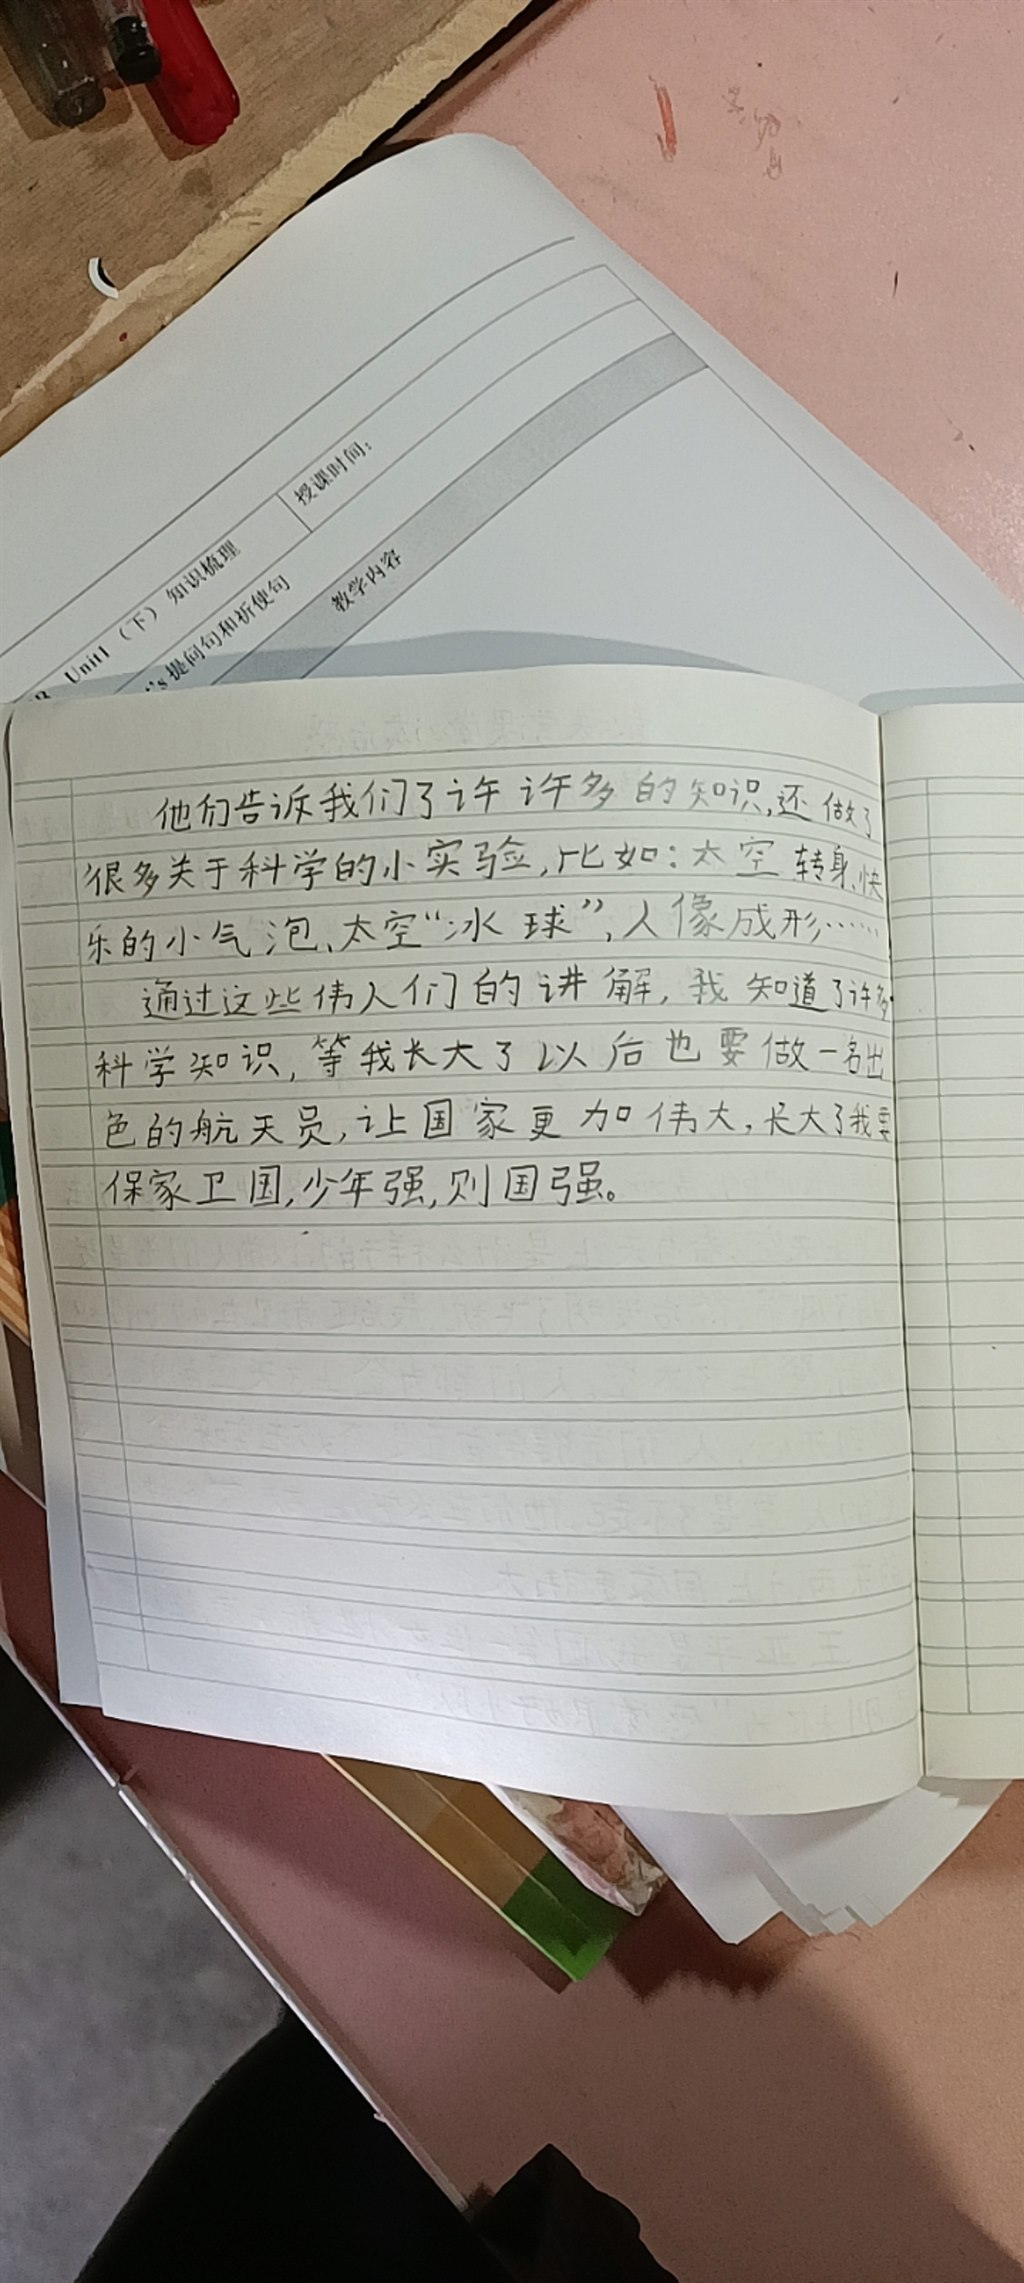 授课时间：
Unit1（下）知识梳理
's 提问句和祈使句
教学内容
他们告诉我们了许许多的知识,还做了
很多关于科学的小实验,比如:太空转身、快
乐的小气泡、太空“冰球”,人像成形……
通过这些伟人们的讲解,我知道了许多
科学知识,等我长大了以后也要做一名出
色的航天员,让国家更加伟大,长大了我要
保家卫国,少年强,则国强。